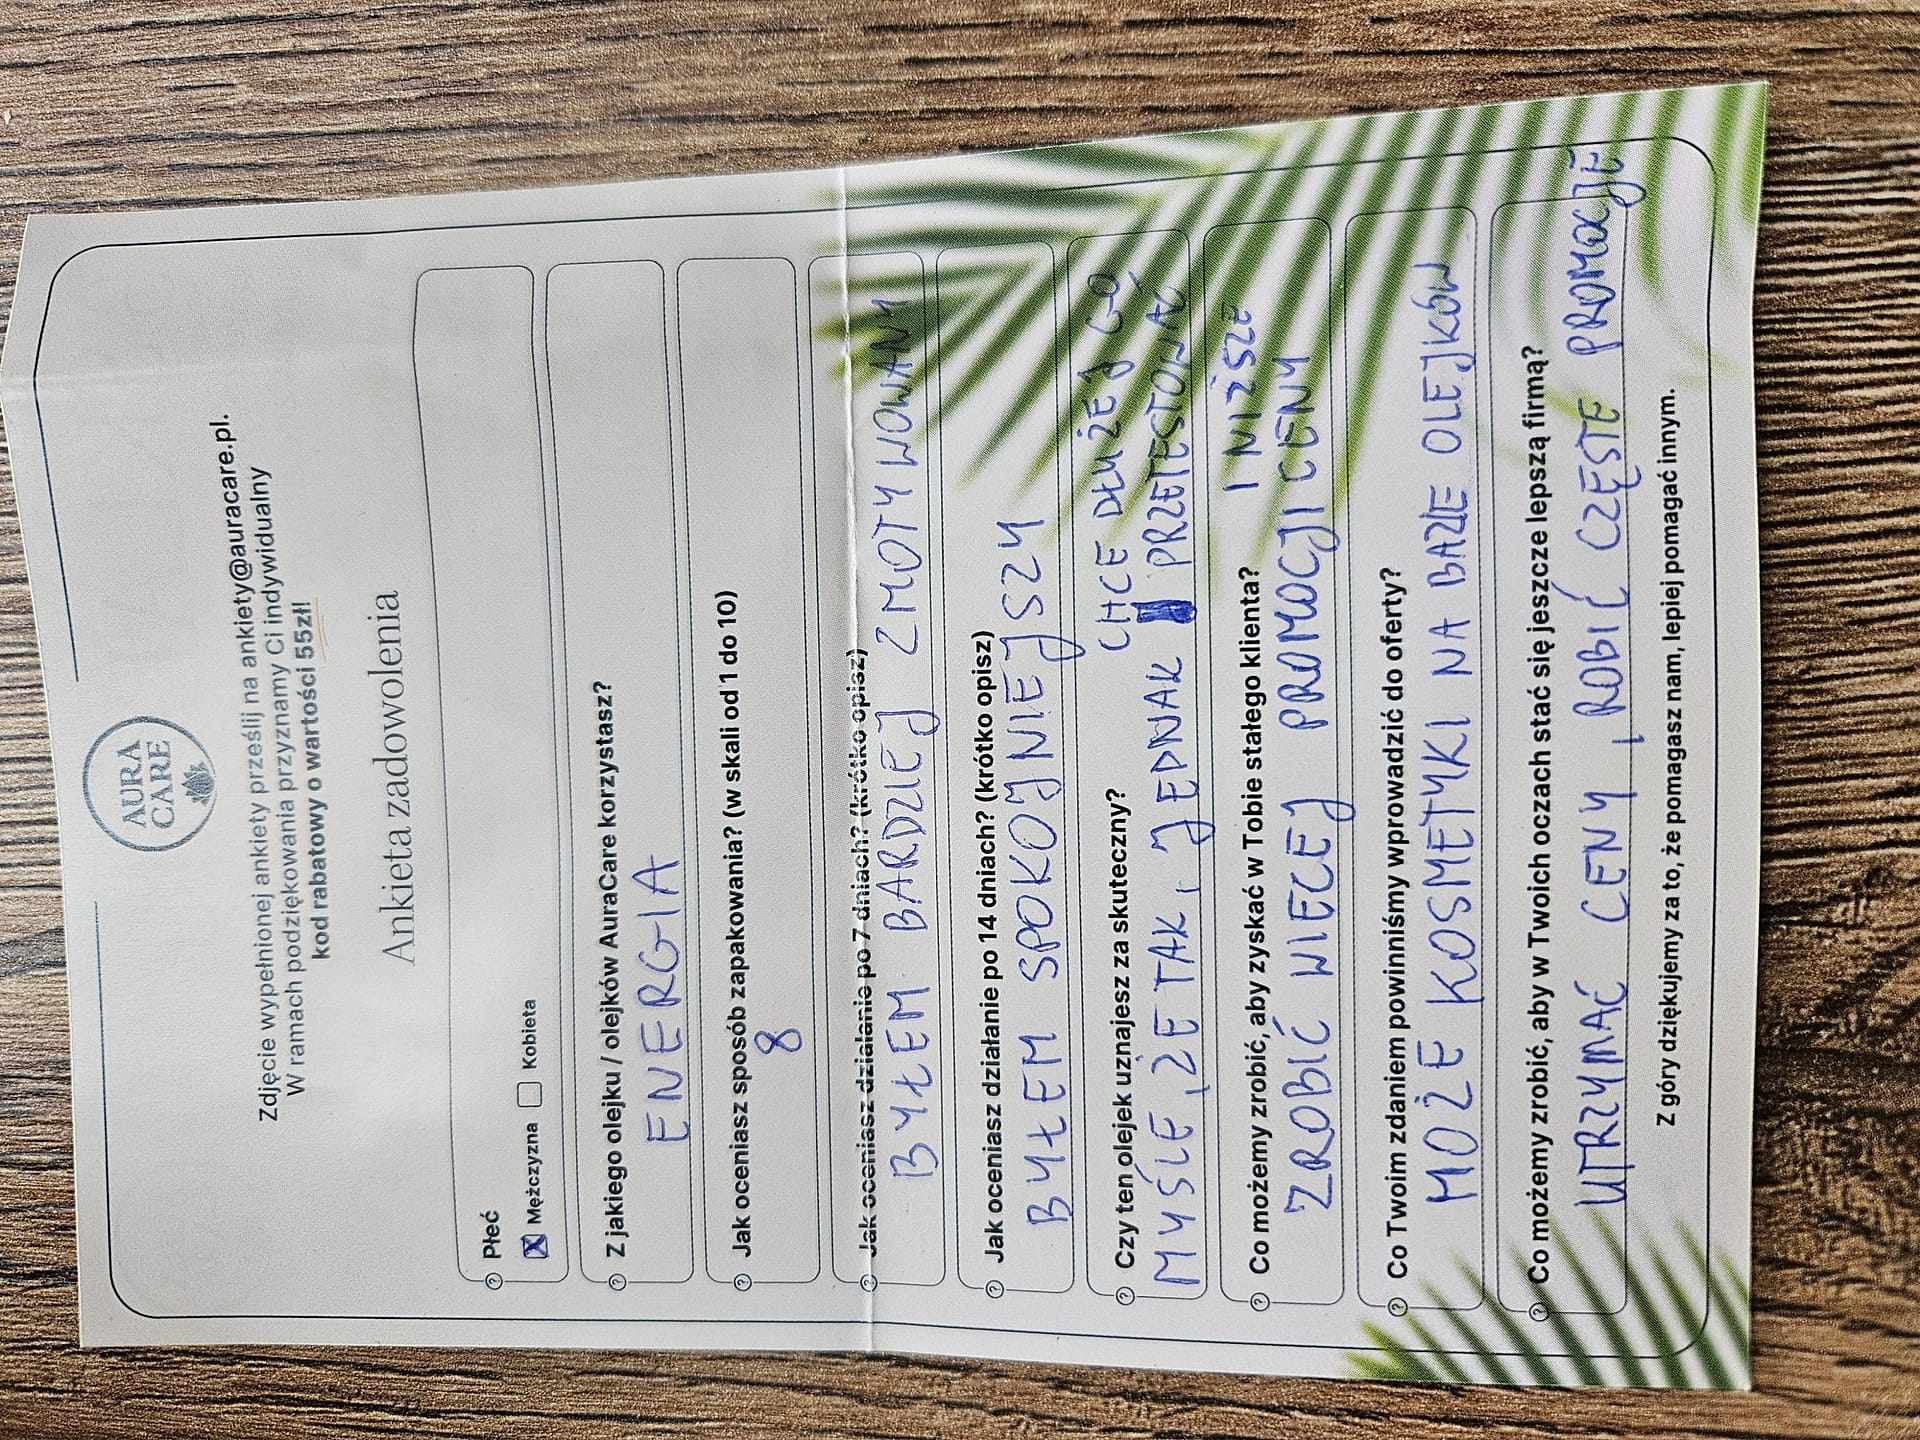 AURA
CARE
Zdjęcie wypełnionej ankiety prześlij na ankiety@auracare.pl.
W ramach podziękowania przyznamy Ci indywidualny
kod rabatowy o wartości 55zł!
Ankieta zadowolenia
Płeć
Mężczyzna Kobieta
Z jakiego olejku / olejków AuraCare korzystasz?
ENERGIA
Jak oceniasz sposób zapakowania? (w skali od 1 do 10)
8
Jak oceniasz działanie po 7 dniach? (krótko opisz)
BYŁEM BARDZIEJ ZMOTYWOWANY
Jak oceniasz działanie po 14 dniach? (krótko opisz)
BYŁEM SPOKOJNIEJSZY
Czy ten olejek uznajesz za skuteczny?
CHCE DŁUŻEJ GO
MYŚLE, ŻE TAK, JEDNAK PRZETESTOWAĆ
Co możemy zrobić, aby zyskać w Tobie stałego klienta?
I NIŻSZE
ZROBIĆ WIECEJ PROMOCJI CENY
Co Twoim zdaniem powinniśmy wprowadzić do oferty?
MOŻE KOSMETYKI NA BAZIE OLEJKÓW
Co możemy zrobić, aby w Twoich oczach stać się jeszcze lepszą firmą?
UTRZYMAĆ CENY, ROBIĆ CZĘSTE PROMOCJE
Z góry dziękujemy za to, że pomagasz nam, lepiej pomagać innym.